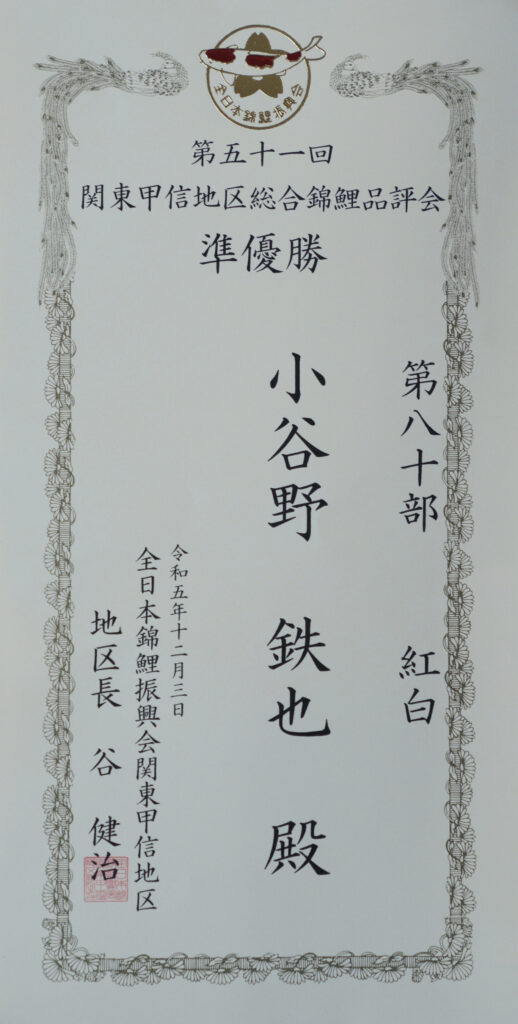 全日本錦鯉振興会
第五十一回
関東甲信地区総合錦鯉品評会
準優勝
第八十部 紅白
小谷野 鉄也 殿
令和五年十二月三日
全日本錦鯉振興会関東甲信地区
地区長 谷 健治